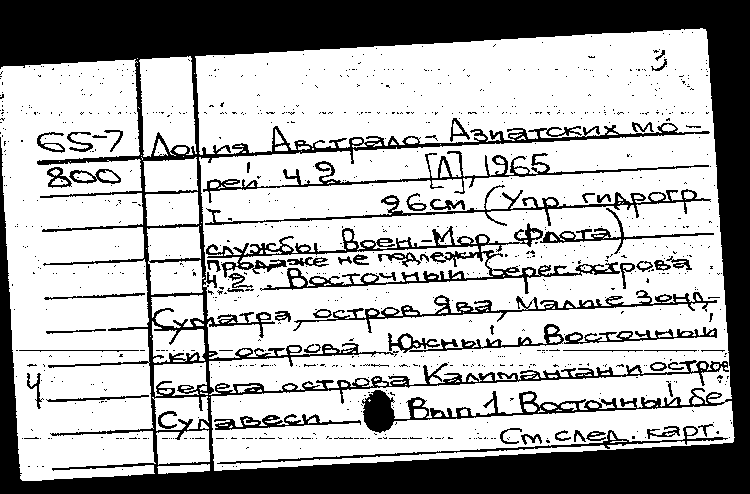 3
65-7 Лоция Австрало-Азиатских мо-
800 рей Ч.2 [Л], 1965
т. 26см. (Упр. гидрогр
службы Воен.-Мор. флота)
Продаже не подлежит.
Ч.2. Восточный берег острова
Суматра, остров Ява, Малые Зонд-
ские острова, Южный и Восточный
4 берега острова Калимантан и остров
Сулавеси. Вып. 1 Восточный бе-
См. след. карт.